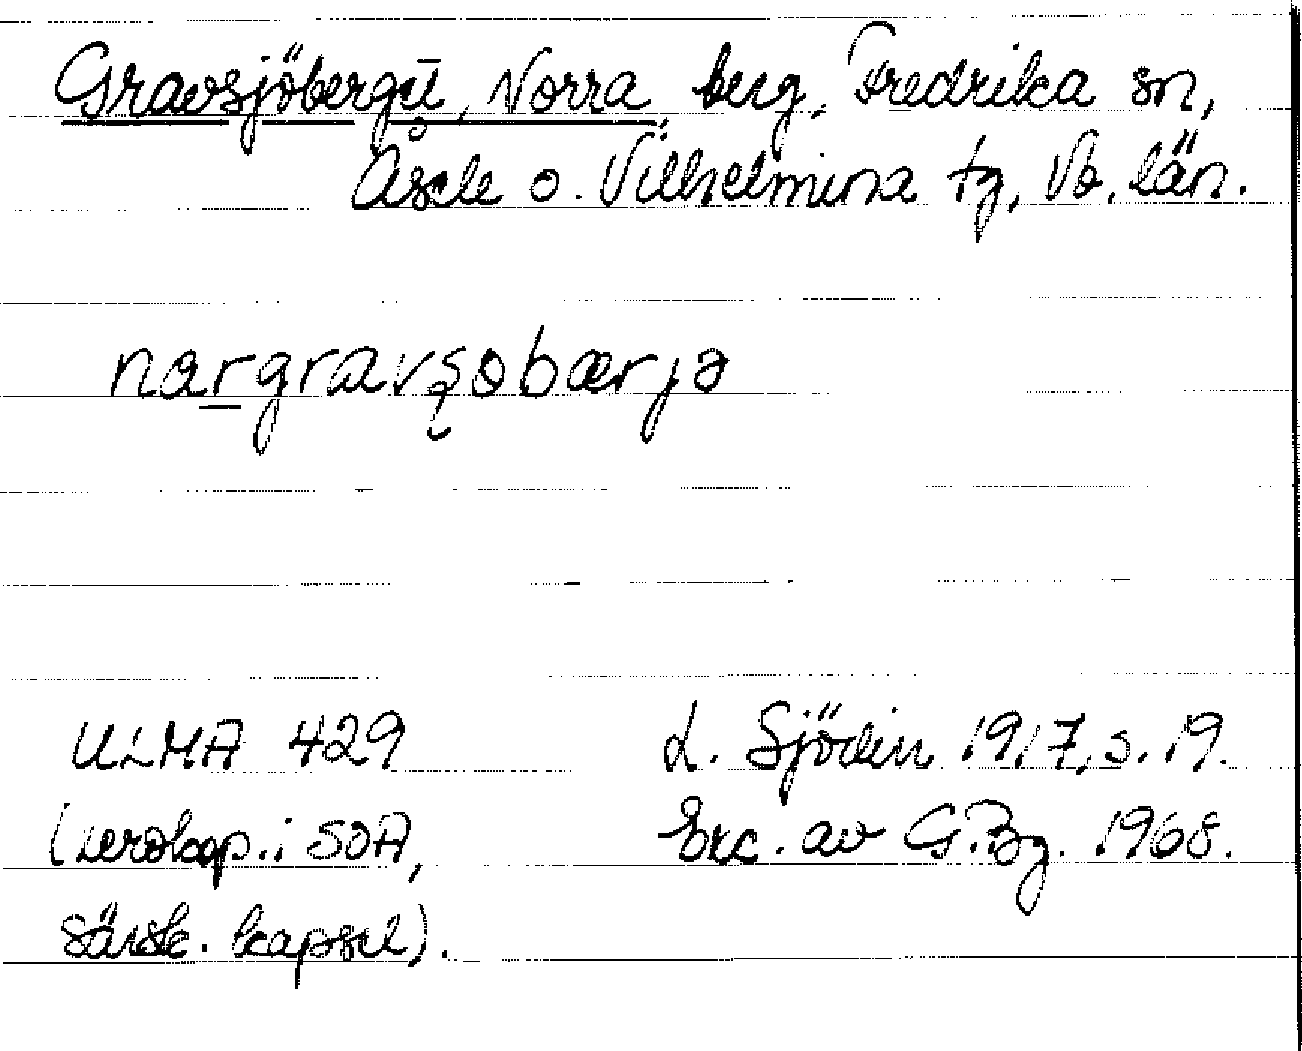 Gravsjöberget, Norra, berg, Fredrika sn,
Åsele o. Vilhelmina tg, Vb. län.
nargravsobærjə
ULMA 429
L. Sjödin 1917, s. 19.
(xerokop. i SOA,
Exc. av G.Bg. 1968.
särsk. kapsel).